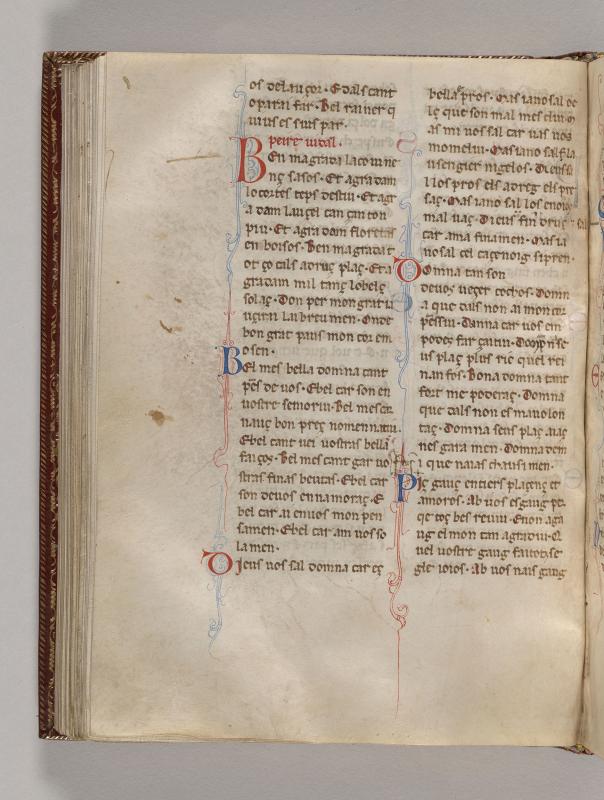 os de lançor. E dals cant
o parai far. Bel rainer q
uius es sius par.
peire vidal.
Ben magrada la covine
nç sasos. Et agradam
lo cortes temps destiu. Et agr
adam lauçel can can ton
piu. Et agradam floretas
en boisos. Ben magradat
ot ço cals adruç plaç. Et a
gradam mil tanç lo bels
solaç. Don per mon grat
iuçirai lai breumen. On de
bon grat paus mon cor em
o sen.
Bel mes bella domna cant
pes de vos. E bel car son en
vostre seinoriu. Bel mes ca
nauç bon preç nomennatiu.
E bel cant vei vostras bella
faiços. Bel mes cant gar vo
stras finas beutaç. E bel car
son de vos ennamoraç. E
bel car ai en vos mon pen
samen. E bel car am vos so
lamen.
Dieus vos sal domna car eç
bella e pros. Mas ia no sal de
lç que son mal mes eliu.
as mi vos sal car vas vos
mom eliu. Mas ia no sal fla
usengier ni gelos. Dieus sa
l los pros els adreg els pre
saç. Mas ia no sal los enoios
mal uaç. Dieus fin druç sal
car ama finamen. Mas ia
no sal cel caçenoig si pren.
Domna tan son
de vos veçer cochos. Domn
a que dals non ai mon cor
pessiu. Domna car vos em
podeç far çaitiu. Domna se
us plaç plus ric quel rei
nan fos. Bona domna tant
fort me poderaç. Domna
que dals non es ma volon
taç. Domna seus plaç auç
nes gara men. Domna dem
i que naias chausimen.
Pç gauç entiers plaçenç et
amoros. Ab vos es gaug pe
qe toç bes reviu. E non aga
ug el mon tan agradiu. Q
uel vostre gaug fai totase
gle ioios. Ab vos nais gaug